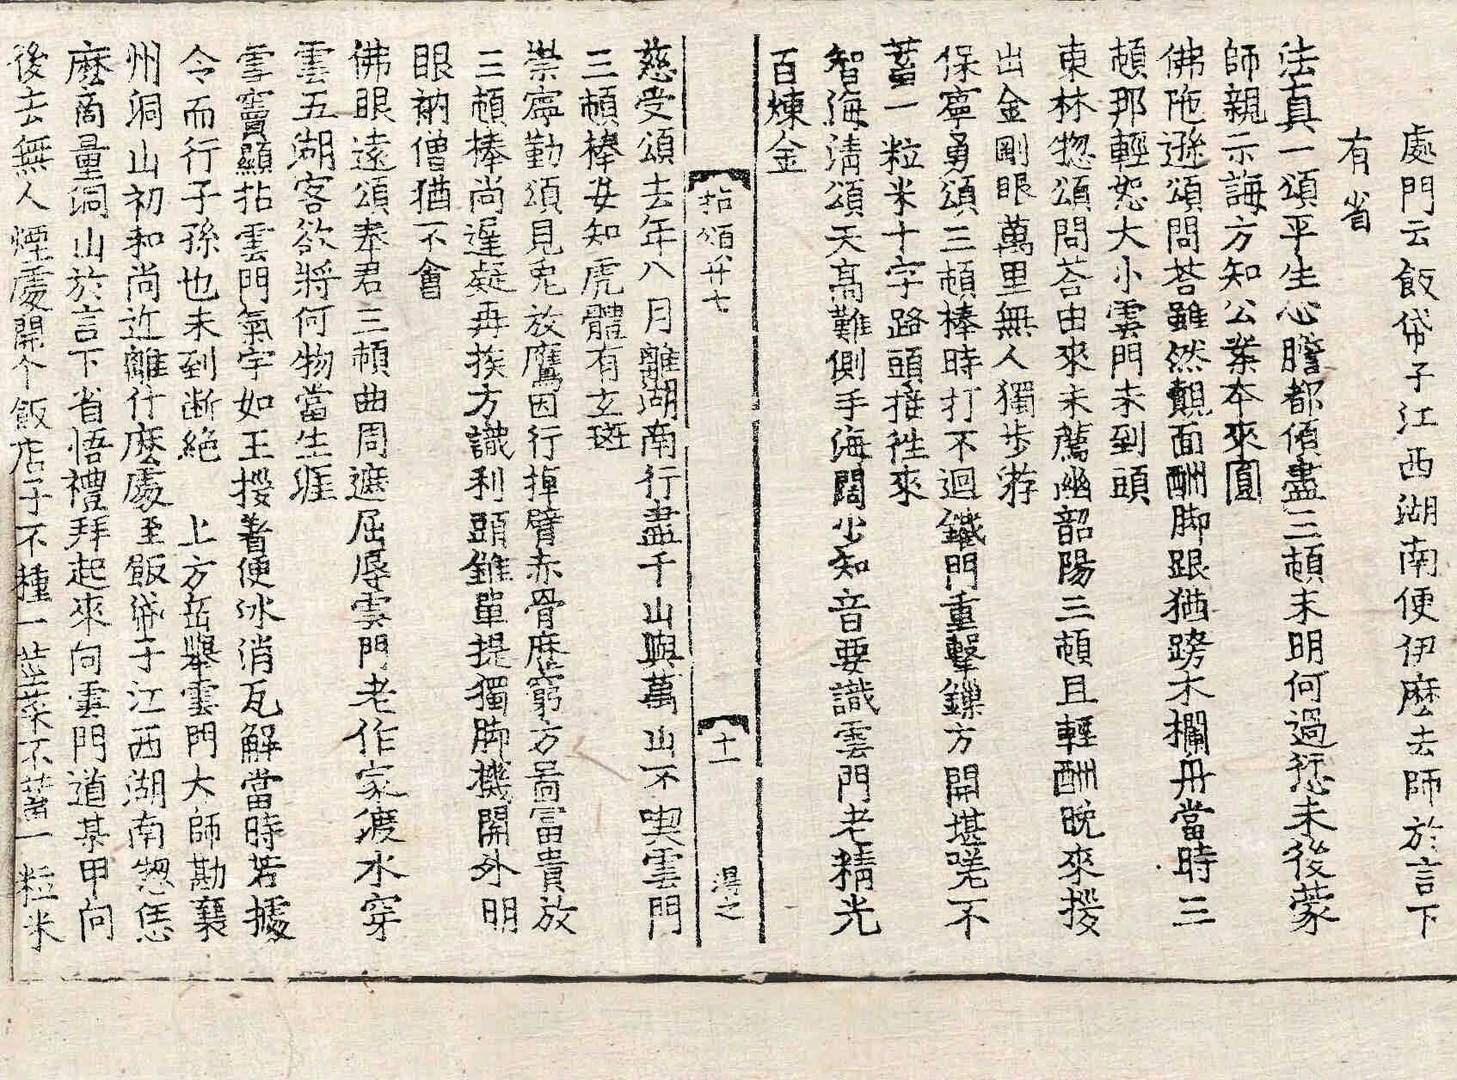 處門云飯帒子江西湖南便伊麽去師於言下
有省
法真一頌平生心膽都傾盡三頓未明何過𠍴末後蒙
師親示誨方知公案本來圓
佛陁遜頌問荅雖然覿面酬脚跟猶跨木欄舟當時三
頓那輕恕大小雲門未到頭
東林惣頌問荅由來未薦幽韶陽三頓且輕酬晚來撥
出金剛眼萬里無人獨步游
保寧勇頌三頓棒時打不迴鐵門重擊鏁方開堪嗟不
蓄一粒米十字路頭接徃來
智海淸頌天髙難側手海闊少知音要識雲門老精光
百煉金
拈頌卄七
十一
淂之
慈受頌去年八月離湖南行盡千山與萬山不喫雲門
三頓棒安知虎體有玄斑
崇寧勤頌見兎放鷹因行掉臂赤骨歷窮方啚富貴放
三頓棒尚遲疑再挨方識利頭錐單提獨脚機開外明
眼衲僧猶不會
佛眼遠頌奉君三頓曲周遮屈辱雲門老作家渡水穿
雲五湖客欲將何物當生涯
雪竇顯拈雲門氣宇如王拶着便氷消瓦解當時若據
令而行子孫也未到断絶　上方岳舉雲門大師勘襄
州洞山初和尚近離什麽處至飯帒子江西湖南惣恁
麽商量洞山於言下省悟禮拜起來向雲門道某甲向
後去無人煙處開个飯店子不種一莖菜不蓄一粒米